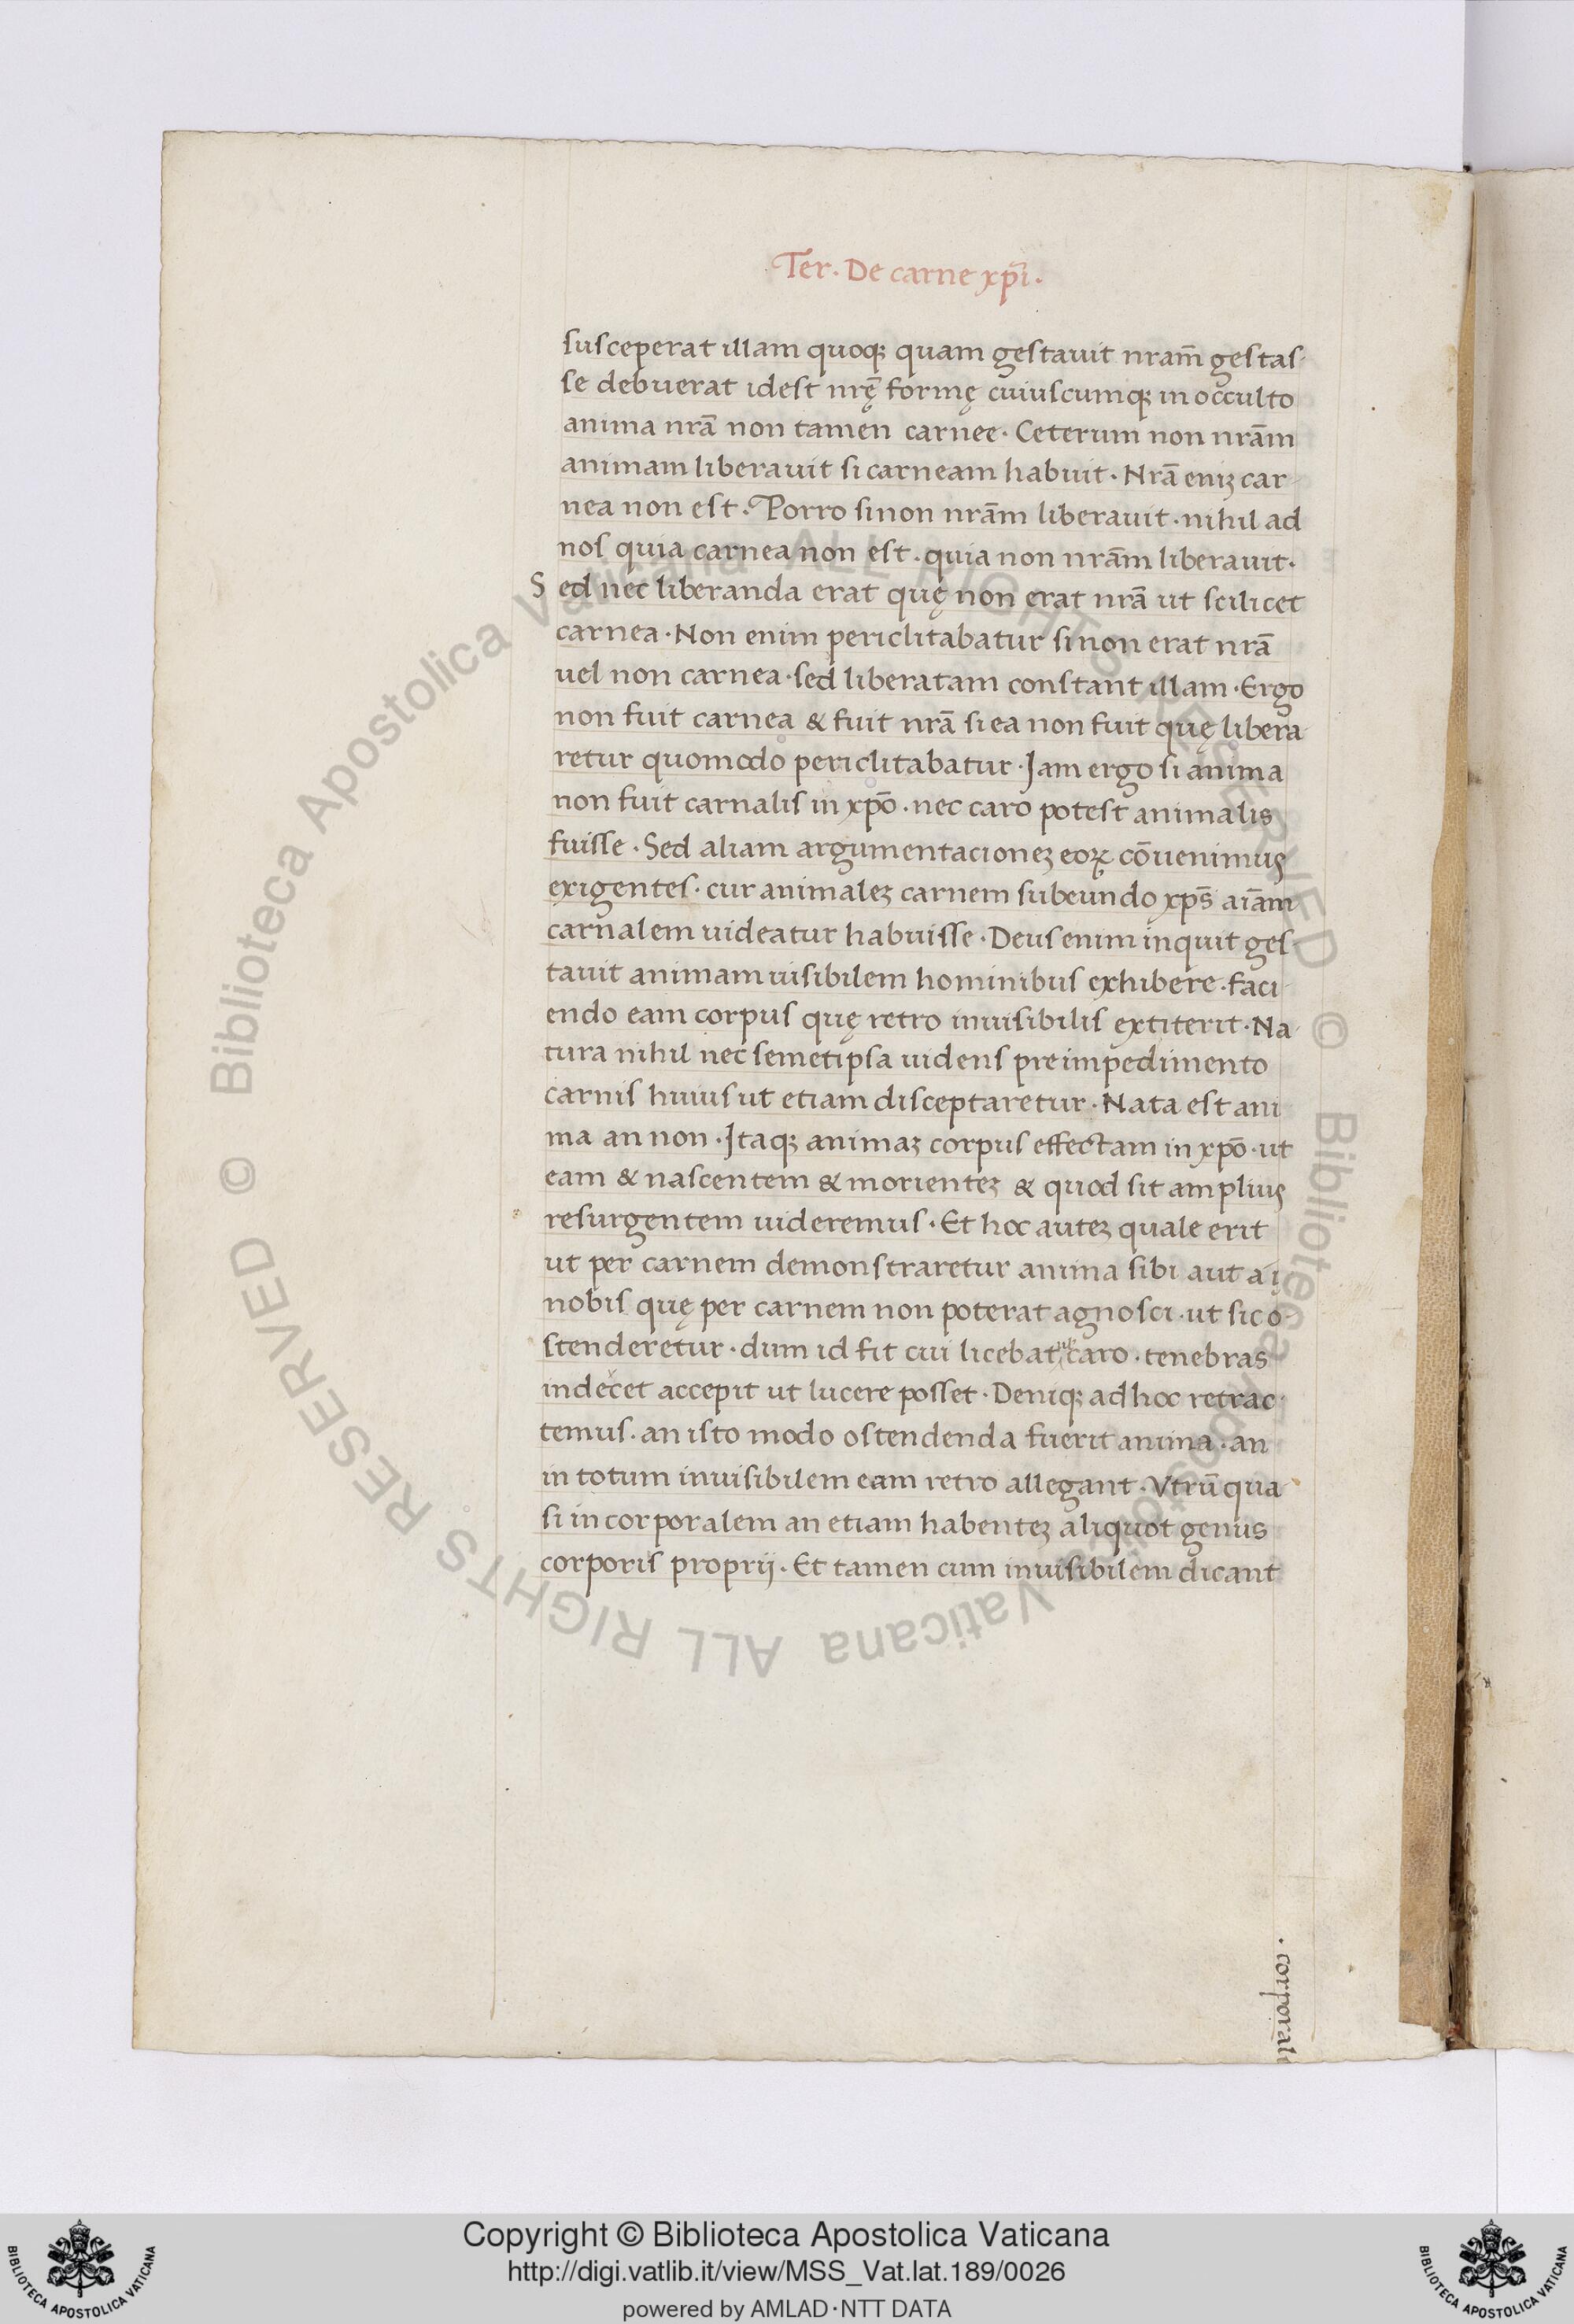 Ter. De carne xp̄i.
susceperat illam quoqꝫ quam gestauit nram̄ gestas-
se debuerat idest nrę̄ formę cuiuscumqꝫ in occulto
anima nrā non tamen carnee. Ceterum non nrām
animam liberauit si carneam habuit. Nrā eniꝫ car-
nea non est. Porro sinon nrām liberauit. nihil ad
nos quia carnea non est. quia non nrām liberauit.
Sed nec liberanda erat quę non erat nrā ut scilicet
carnea. Non enim periclitabatur si non erat nrā
uel non carnea. sed liberatam constant illam. Ergo
non fuit carnea & fuit nrā si ea non fuit quę libera-
retur quomodo periclitabatur. Jam ergo si anima
non fuit carnalis in xp̄o. nec caro potest animalis
fuisse. Sed aliam argumentacioneꝫ eoꝝ cōuenimus
exigentes. cur animaleꝫ carnem subeundo xp̄s aīam
carnalem uideatur habuisse. Deus enim inquit ges-
tauit animam uisibilem hominibus exhibere. faci-
endo eam corpus quę retro inuisibilis extiterit. Na-
tura nihil nec semetipsa uidens pre impedimento
carnis huius ut etiam disceptaretur. Nata est ani
ma an non. Jtaqꝫ animaꝫ corpus effectam in xp̄o. ut
eam & nascentem & morienteꝫ & quod sit amplius
resurgentem uideremus. Et hoc auteꝫ quale erit
ut per carnem demonstraretur anima sibi aut a i
nobis quę per carnem non poterat agnosci. ut sic o-
stenderetur. dum id fit cui licebat caro. tenebras
indecet accepit ut lucere posset. Deniqꝫ ad hoc retrac-
temus. an isto modo ostendenda fuerit anima. an
in totum inuisibilem eam retro allegant. Vtrū qua-
si incorporalem an etiam habenteꝫ aliquot genus
corporis proprij. Et tamen cum inuisibilem dicant
. corporali
© Biblioteca Apostolica Vaticana ALL RIGHTS RESERVED © Biblioteca Apostolica Vaticana ALL RIGHTS RESERVED
Copyright © Biblioteca Apostolica Vaticana
http://digi.vatlib.it/view/MSS_Vat.lat.189/0026
powered by AMLAD·NTT DATA
BIBLIOTECA APOSTOLICA VATICANA
BIBLIOTECA APOSTOLICA VATICANA